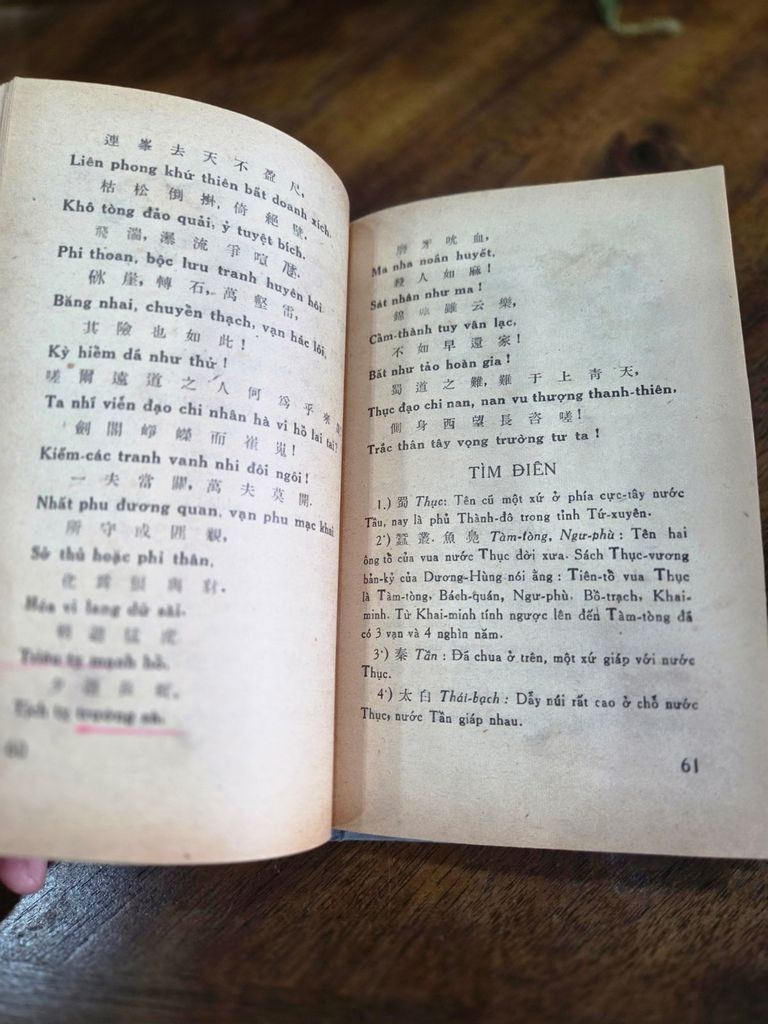 連峯去天不盈尺,
Liên phong khứ thiên bất doanh xích.
枯松倒掛,倚絕壁.
Khô tòng đảo quải, ỷ tuyệt bích.
飛湍,瀑流爭喧豗.
Phi thoan, bộc lưu tranh huyên hôi.
砯崖,轉石,萬壑雷,
Băng nhai, chuyển thạch, vạn hác lôi,
其險也如此!
Kỳ hiểm dã như thử !
嗟爾遠道之人何爲乎來
Ta nhĩ viễn đạo chi nhân hà vi hồ lai tai?
劍閣崢嶸而崔嵬!
Kiếm-các tranh vanh nhi đôi ngôi!
一夫當關,萬夫莫開.
Nhất phu đương quan, vạn phu mạc khai
所守或匪親,
Sở thủ hoặc phi thân,
化爲狼與豺.
Hóa vi lang dữ sài.
朝避猛虎
Triêu tị mạnh hổ.
夕避長蛇,
Tịch tị trường xà.
60
磨牙吮血,
Ma nha noãn huyết,
殺人如麻!
Sát nhân như ma !
錦城雖云樂,
Cầm-thành tuy vân lạc,
不如早還家!
Bất như tảo hoàn gia !
蜀道之難,難于上靑天,
Thục đạo chi nan, nan vu thượng thanh-thiên,
側身西望長咨嗟!
Trắc thân tây vọng trường tư ta !
TÌM ĐIỂN
1.) 蜀 Thục: Tên cũ một xứ ở phía cực-tây nước
Tàu, nay là phủ Thành-đô trong tỉnh Tứ-xuyên.
2·) 蠶叢. 魚鳧 Tàm-tòng, Ngư-phù : Tên hai
ông tổ của vua nước Thục đời xưa. Sách Thục-vương
bản-kỷ của Dương-Hùng nói ằng : Tiên-tổ vua Thục
là Tàm-tòng, Bách-quán, Ngư-phù. Bồ-trạch, Khai-
minh. Từ Khai-minh tính ngược lên đến Tàm-tòng đã
có 3 vạn và 4 nghìn năm.
3·) 秦 Tần : Đã chua ở trên, một xứ giáp với nước
Thục.
4·) 太白 Thái-bạch : Dẫy núi rất cao ở chỗ nước
Thục, nước Tần giáp nhau.
61